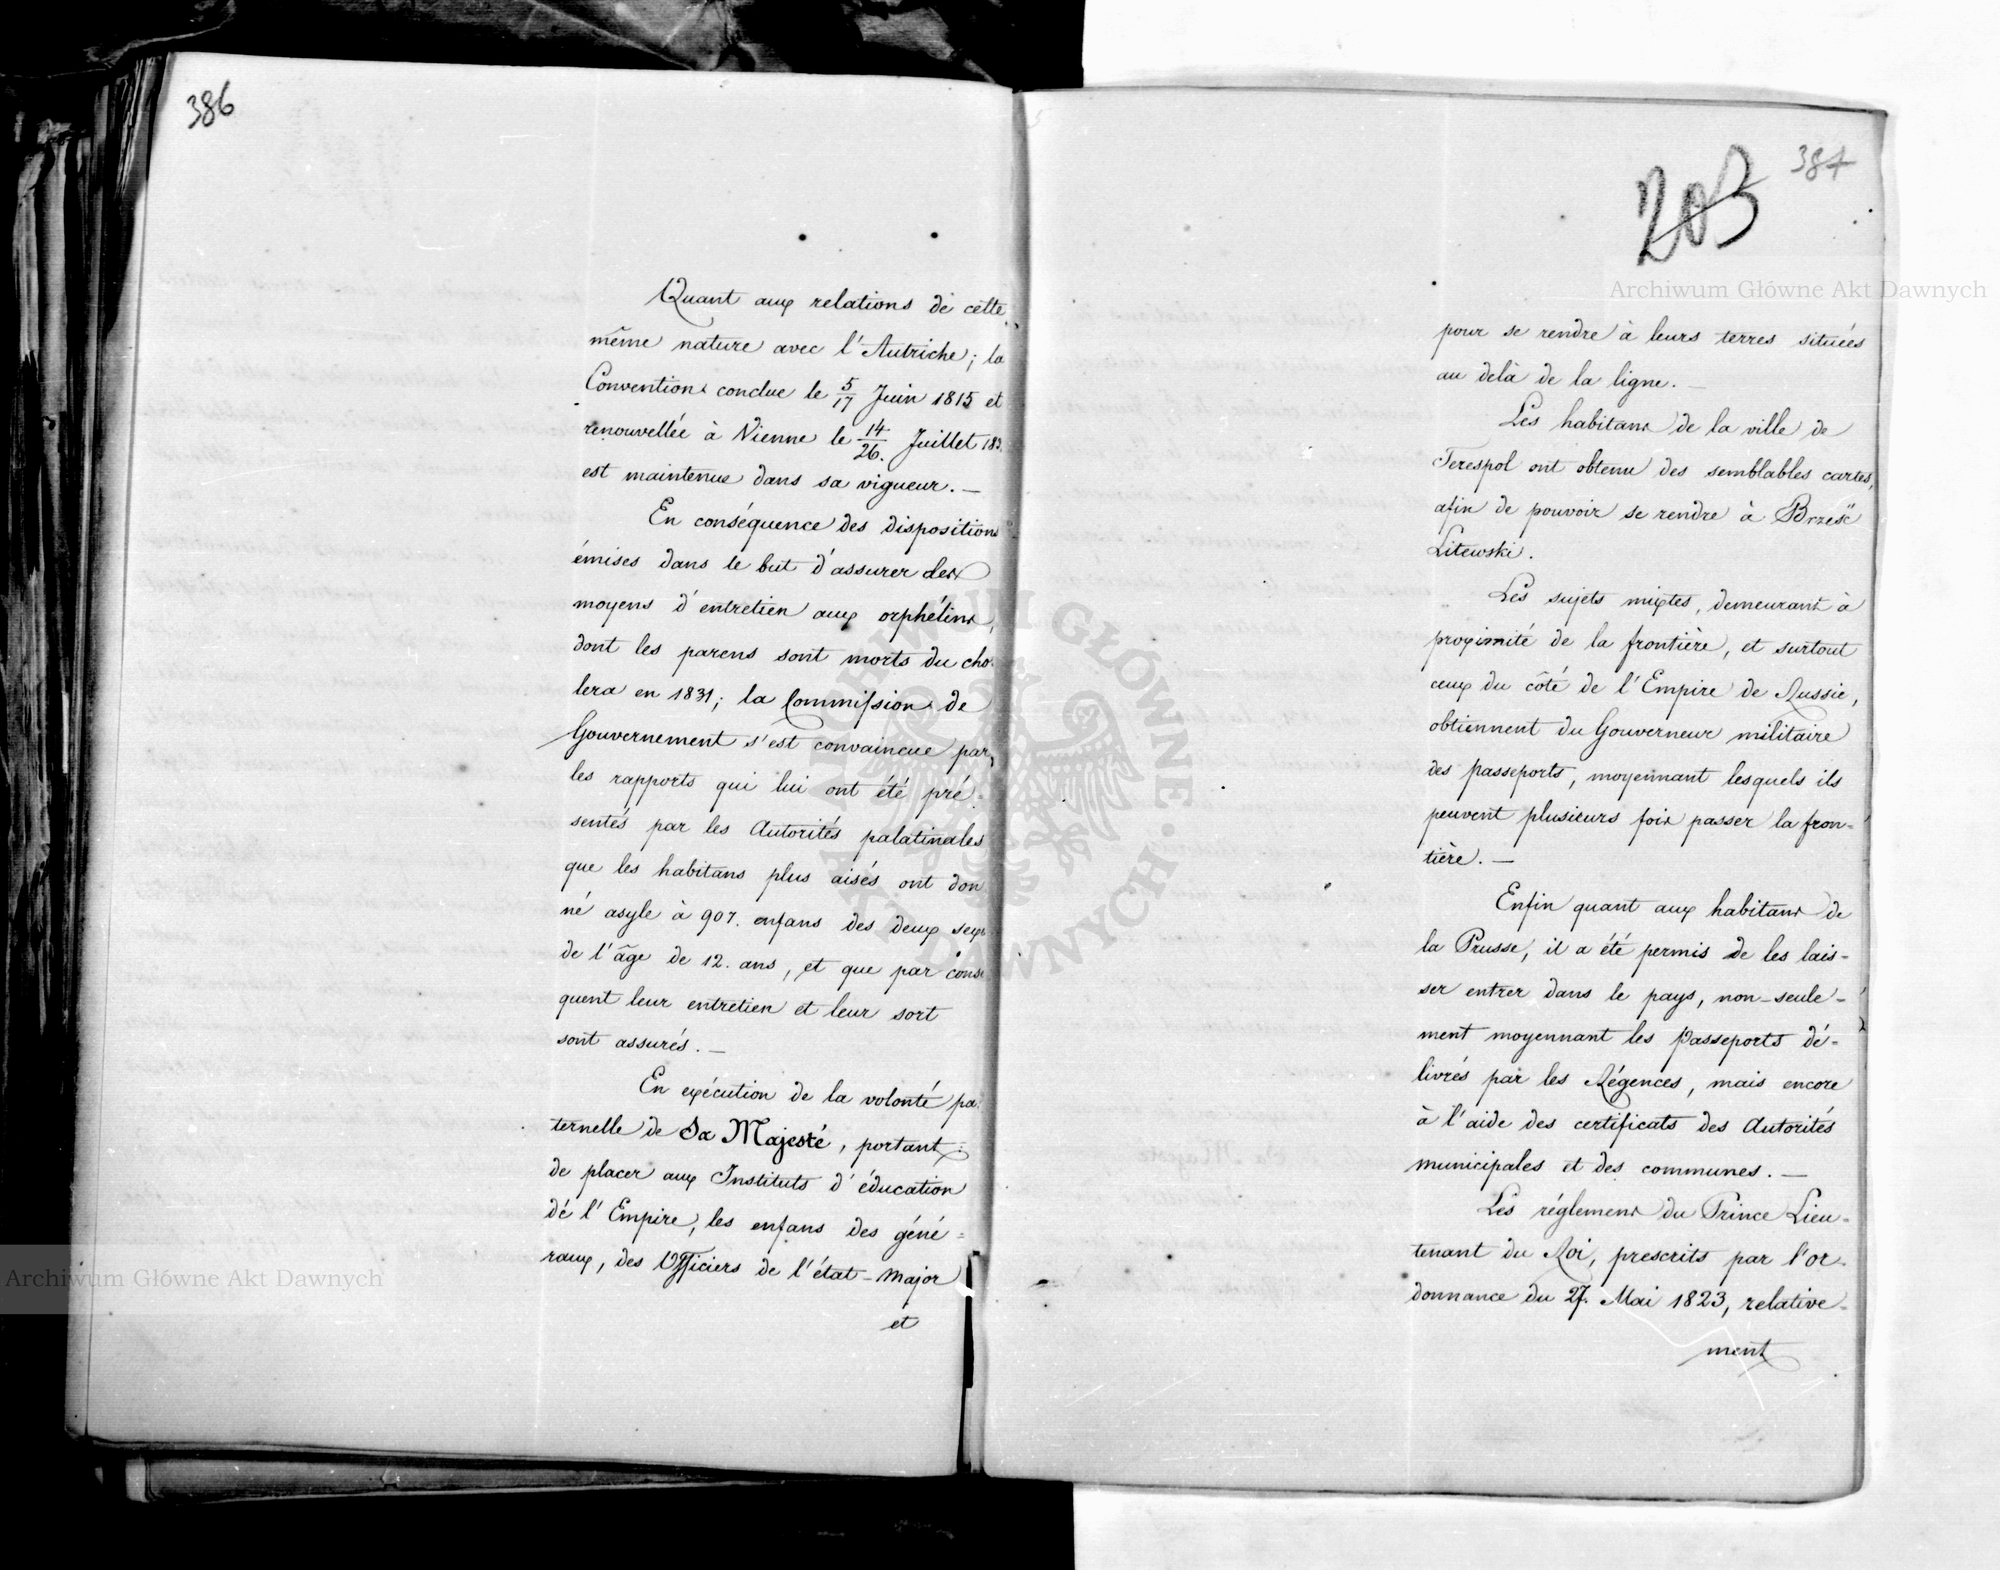 386
Quant aux relations de cette
même nature avec l'Autriche; la
Convention conclue le 5/17 Juin 1815 et
renouvellée à Vienne le 14/26. Juillet 183
est maintenue dans sa vigueur. —
En conséquence des disposition
émises dans le but d'assurer des
moyens d'entretien aux orphélins,
dont les parens sont morts du cho-
lera en 1831; la Commission de
Gouvernement s'est convaincue par
les rapports qui lui ont été pré-
sentés par les Autorités palatinales
que les habitans plus aisés ont don
né asyle à 907. enfans des deux sex
de l'âge de 12. ans, et que par cons
quent leur entretien et leur sort
sont assurés. —
En exécution de la volonté pa-
ternelle de Sa Majesté, portant
de placer aux Instituts d'éducation
de l'Empire, les enfans des géné-
raux, des Officiers de l'état-major
et
387
203
pour se rendre à leurs terres situées
au delà de la ligne. —
Les habitans de la ville de
Terespol ont obtenu des semblables cartes,
afin de pouvoir se rendre à Brześć
Litewski.
Les sujets mixtes, demeurant à
proximité de la frontière, et surtout
ceux du côté de l'Empire de Russie,
obtiennent du Gouverneur militaire
des passeports, moyennant lesquels ils
peuvent plusieurs fois passer la fron-
tière. —
Enfin quant aux habitans de
la Prusse, il a été permis de les lais-
ser entrer dans le pays, non-seule-
ment moyennant les Passeports dé-
livrés par les Régences, mais encore
à l'aide des certificats des Autorités
municipales et des communes. —
Les réglemens du Prince Lieu-
tenant du Roi, prescrits par l'or-
donnance du 27. Mai 1823, relative-
ment
Archiwum Główne Akt Dawnych
Archiwum Główne Akt Dawnych
ARCHIWUM GŁÓWNE · AKT DAWNYCH ·